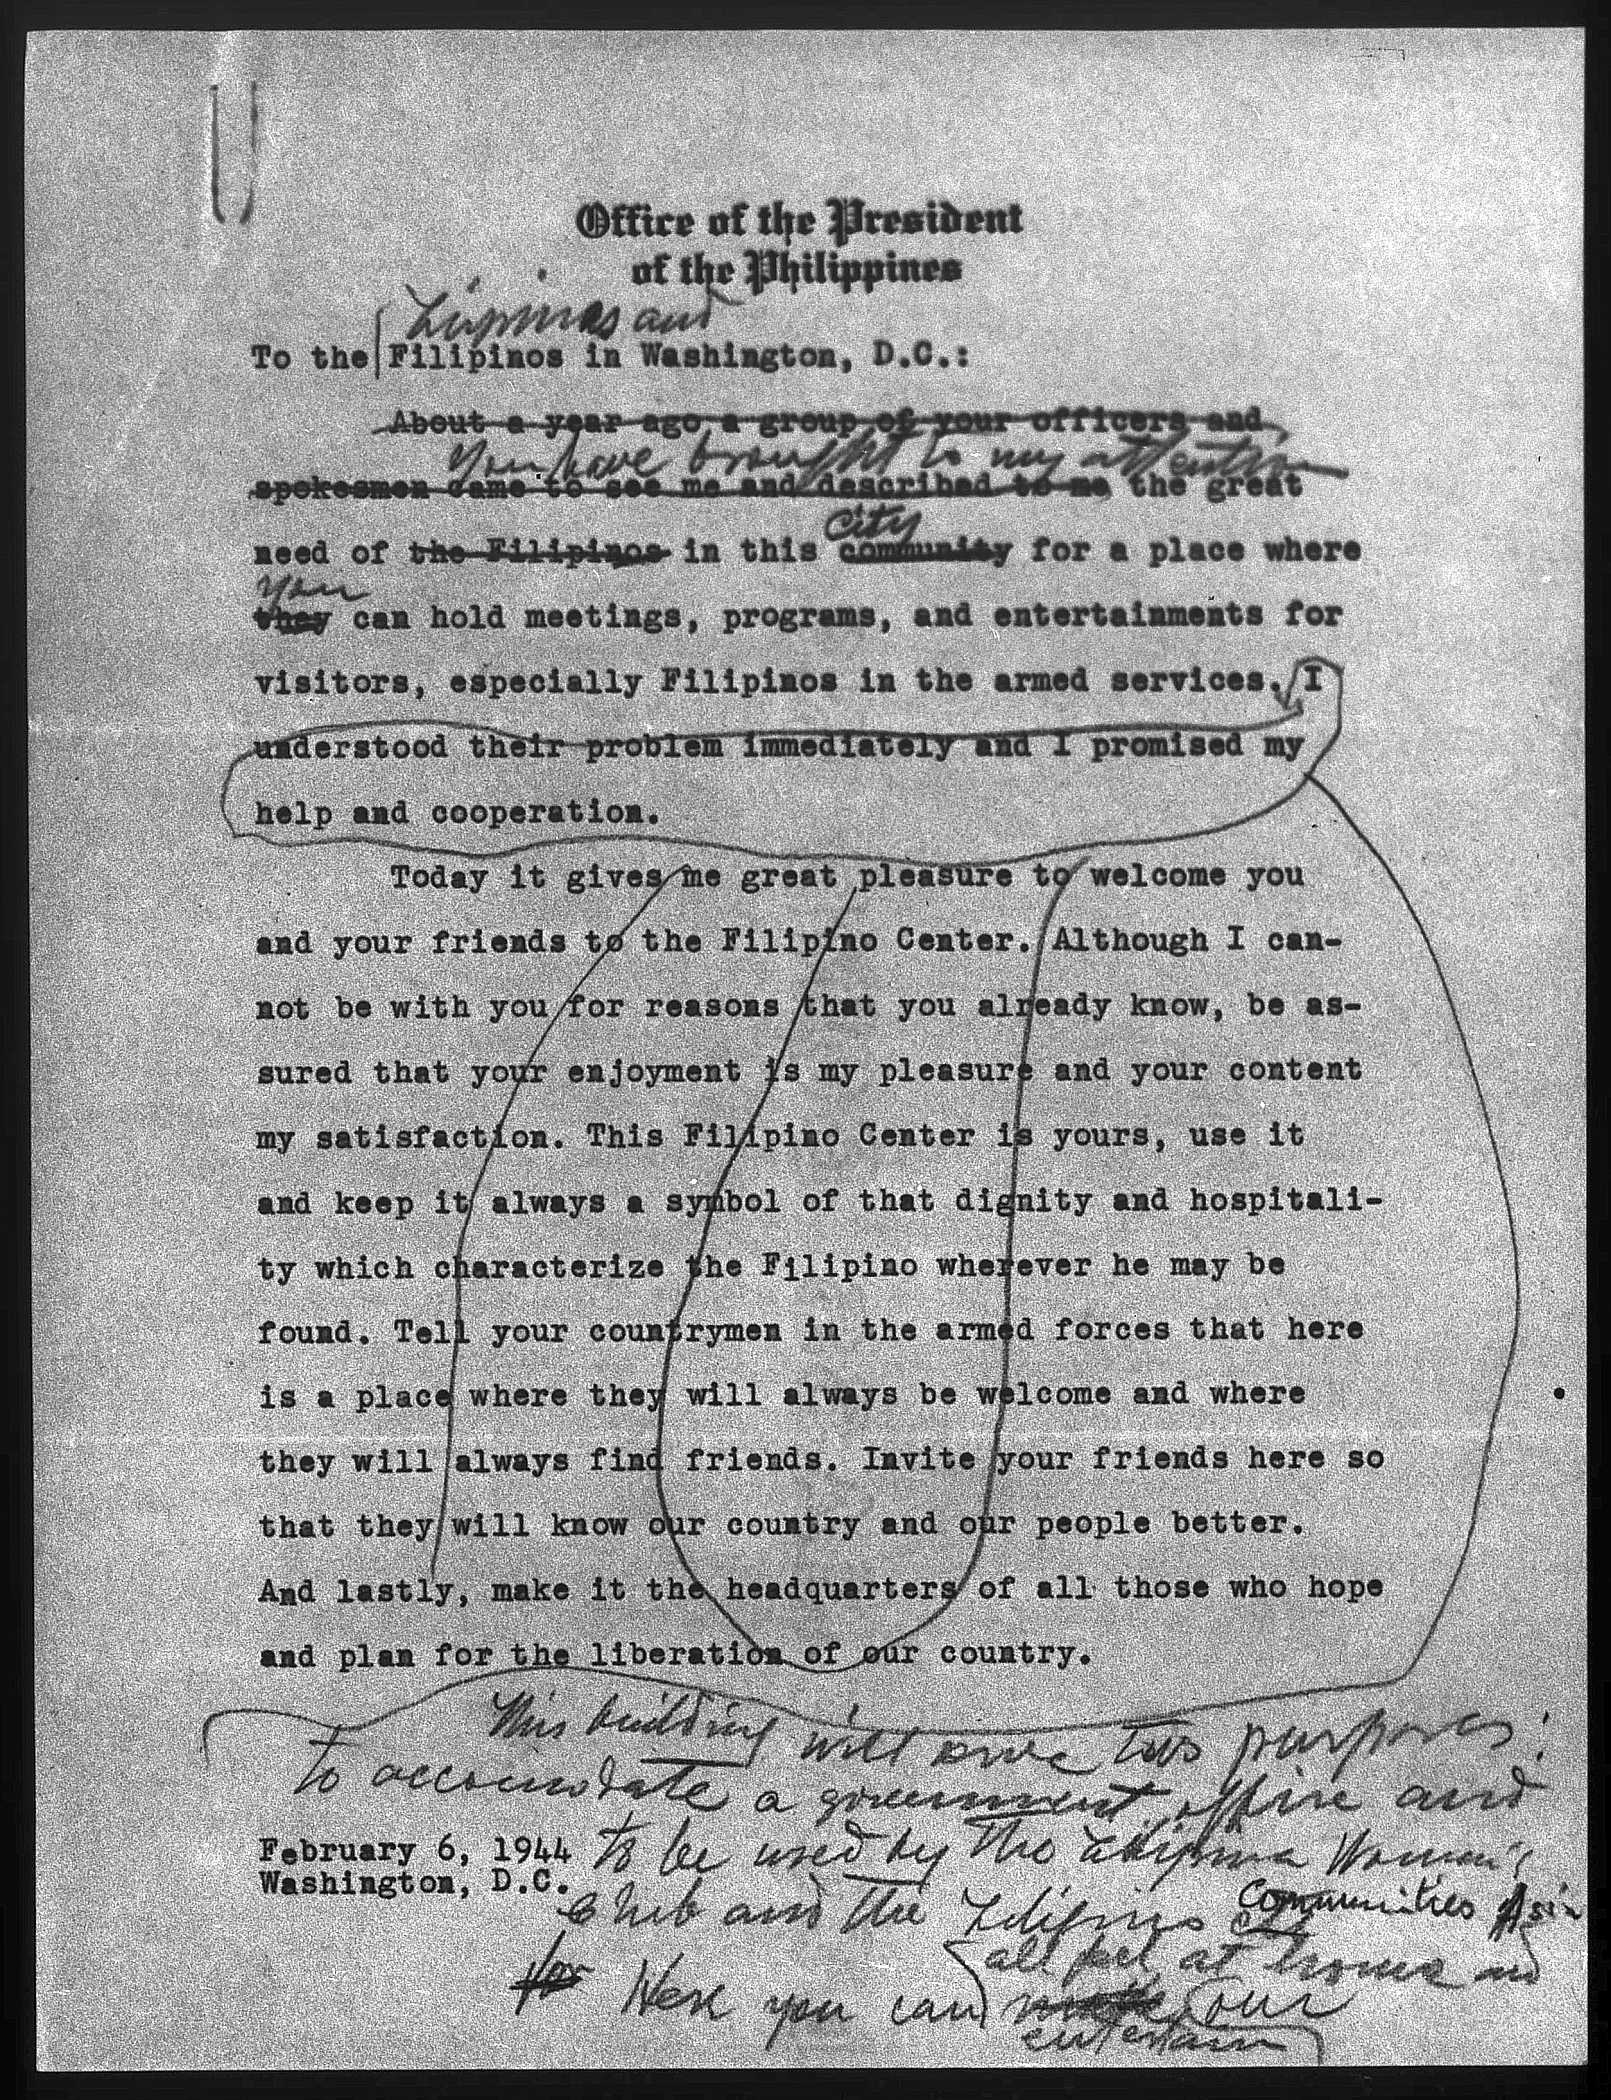 Office of the President
of the Philippines
Filipinas and
To the Filipinos in Washington, D.C.:
About a year ago a group of your officers and
You have brought to my attention
spokesmen came to see me and described to me the great
city
need of the Filipinos in this community for a place where
you
they can hold meetings, programs, and entertainments for
visitors, especially Filipinos in the armed services. I
understood their problem immediately and I promised my
help and cooperation.
Today it gives me great pleasure to welcome you
and your friends to the Filipino Center. Although I can-
not be with you for reasons that you already know, be as-
sured that your enjoyment is my pleasure and your content
my satisfaction. This Filipino Center is yours, use it
and keep it always a symbol of that dignity and hospitali-
ty which characterize the Filipino wherever he may be
found. Tell your countrymen in the armed forces that here
is a place where they will always be welcome and where
they will always find friends. Invite your friends here so
that they will know our country and our people better.
And lastly, make it the headquarters of all those who hope
and plan for the liberation of our country.
This building will serve two purposes:
to accomodate a government office and
February 6, 1944 to be used by the Filipina Woman's
Washington, D.C.
Club and the Filipino Communities
all feel at home and
Here you can our
entertain